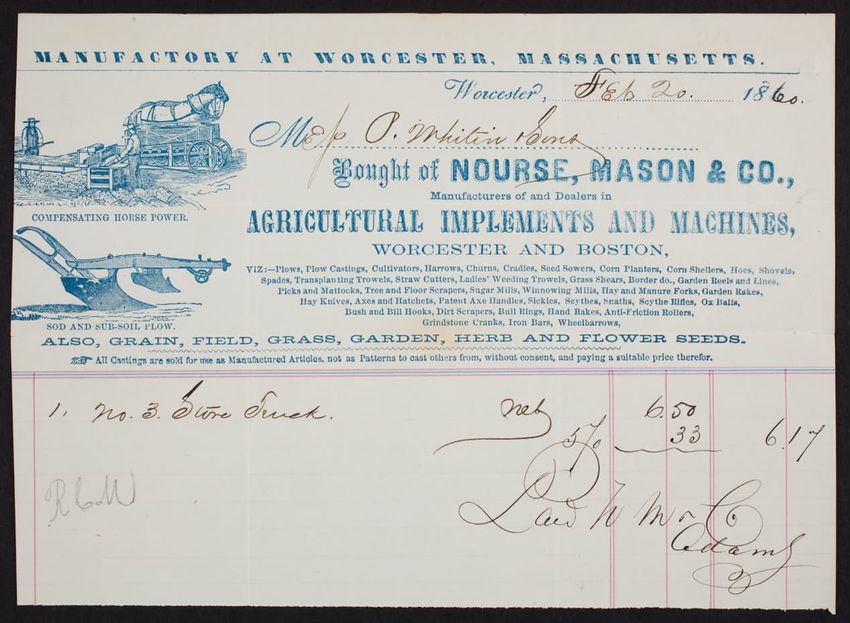 MANUFACTORY AT WORCESTER, MASSACHUSETTS.
Worcester, Feb 20. 1860.
P. Whitin & Sons
Bought of NOURSE, MASON & CO.,
Manufacturers of and Dealers in
AGRICULTURAL IMPLEMENTS AND MACHINES,
WORCESTER AND BOSTON,
VIZ:—Plows, Plow Castings, Cultivators, Harrows, Churns, Cradles, Seed Sowers, Corn Planters, Corn Shellers, Hoes, Shovels,
Spades, Transplanting Trowels, Straw Cutters, Ladies' Weeding Trowels, Grass Shears, Border do., Garden Reels and Lines,
Picks and Mattocks, Tree and Floor Scrapers, Sugar Mills, Winnowing Mills, Hay and Manure Forks, Garden Rakes,
Hay Knives, Axes and Hatchets, Patent Axe Handles, Sickles, Scythes, Snaths, Scythe Rifles, Ox Balls,
Bush and Bill Hooks, Dirt Scrapers, Bull Rings, Hand Rakes, Anti-Friction Rollers,
Grindstone Cranks, Iron Bars, Wheelbarrows,
COMPENSATING HORSE POWER.
SOD AND SUB-SOIL PLOW.
ALSO, GRAIN, FIELD, GRASS, GARDEN, HERB AND FLOWER SEEDS.
All Castings are sold for use as Manufactured Articles, not as Patterns to cast others from, without consent, and paying a suitable price therefor.
1. No. 3. Store Truck. Net 6.50
5% 33 6.17
N M & Co
Adams